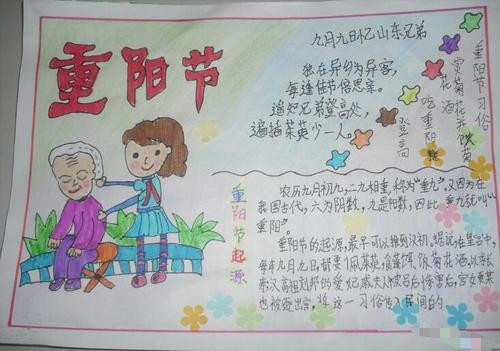 重阳节
九月九日忆山东兄弟
独在异乡为异客,
每逢佳节倍思亲。
遥知兄弟登高处,
遍插茱萸少一人。
重阳节习俗
赏菊花并饮菊
花酒
吃重阳糕
登高
重阳节起源
农历九月初九,二九相重,称为“重九”。又因为在
我国古代,六为阴数,九是阳数,因此,重九就叫“
重阳”。
重阳节的起源,最早可以推到汉初。据说,在皇宫中,
每年九月九日,都要佩茱萸,食蓬饵,饮菊花酒,以求长
寿。汉高祖刘邦的爱妃戚夫人被吕后惨害后,宫女贾某
也被逐出宫,将这一习俗传入民间的